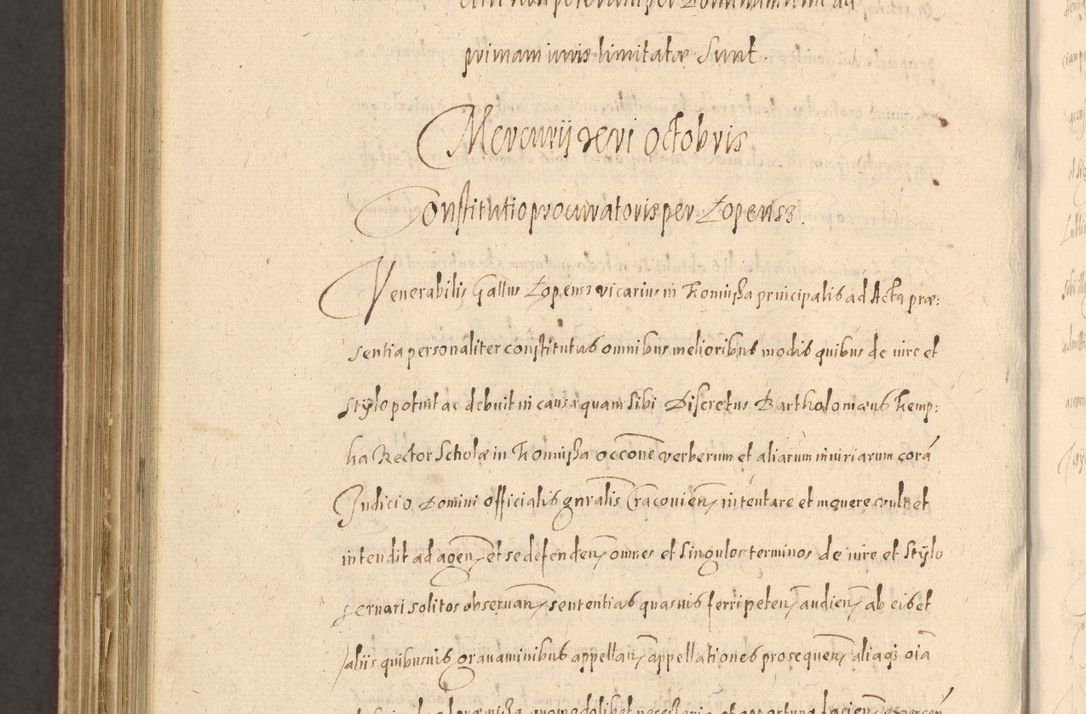 primam iuris limitatæ Sunt.
Mercurij xvi Octobris
Constitutio procuratoris per Zopenss.
Venerabilis Gallus Zopenss vicarius in Komissa principalis ad Acta præ:
sentia personaliter constitutus omnibus melioribus modis quibus de iure et
stylo potuit ac debuit in causa quam sibi Discretus Bartholomæus Kemp:
ha Rector Scholæ in Komissa occõne verberum et aliarum iniuriarum corã
Judicio Domini officialis gnralis Cracovien, intentare et mouere vult et
intendit ad agen, et se defenden, omnes et singulos terminos de iure et stylo
seruari solitos obseruan, sententias quasuis ferri peten, audien, ab eis et
aliis quibusuis grauaminibus appellan, appellationes prosequen, aliaq; oĩa